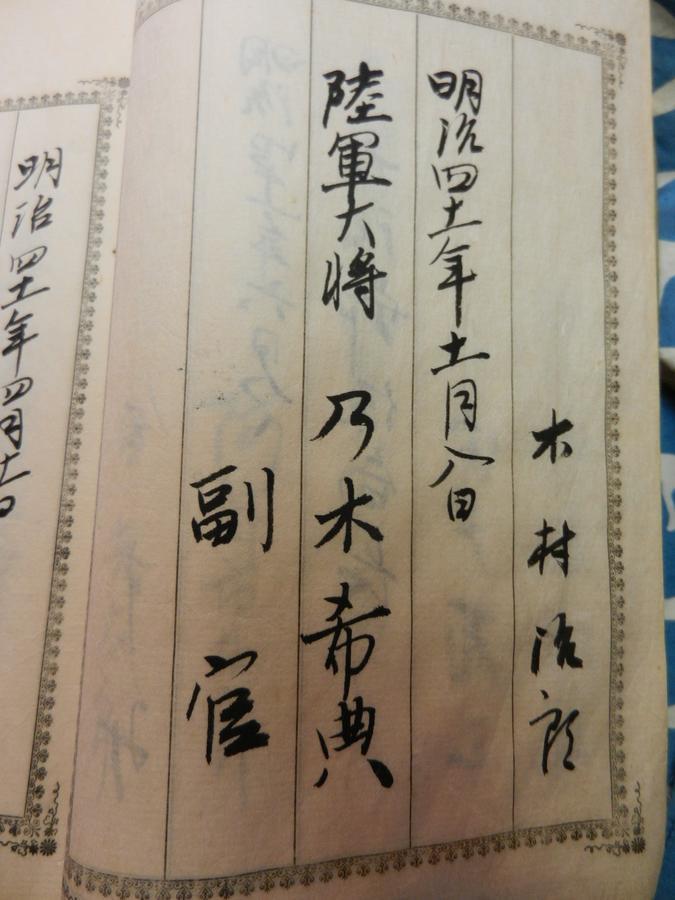 木村治郎
明治四十一年十一月八日
陸軍大将 乃木希典
副官
明治四十一年四月十一日